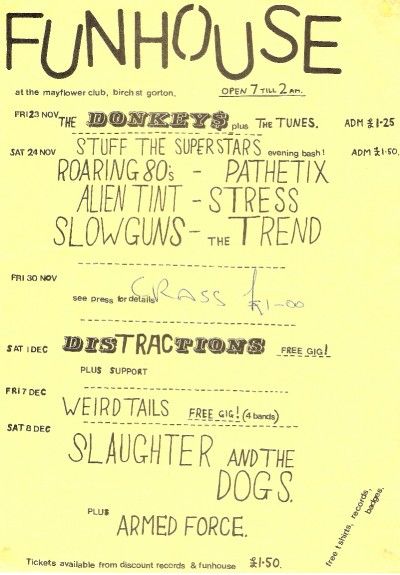 FUNHOUSE
at the mayflower club, birch st gorton. OPEN 7 TILL 2 AM.
FRI 23 NOV THE DONKEY$ plus THE TUNES. ADM £1-25
SAT 24 NOV STUFF THE SUPERSTARS evening bash! ADM £1·50.
ROARING 80's - PATHETIX
ALIEN TINT - STRESS
SLOWGUNS - THE TREND
FRI 30 NOV
see press for details CRASS £1-00
SAT 1 DEC DISTRACTIONS FREE GIG!
PLUS SUPPORT
FRI 7 DEC
WEIRD TAILS FREE GIG! (4 bands)
SAT 8 DEC
SLAUGHTER AND THE
DOGS.
PLUS
ARMED FORCE.
free t shirts, records,
badges.
Tickets available from discount records & funhouse £1·50.